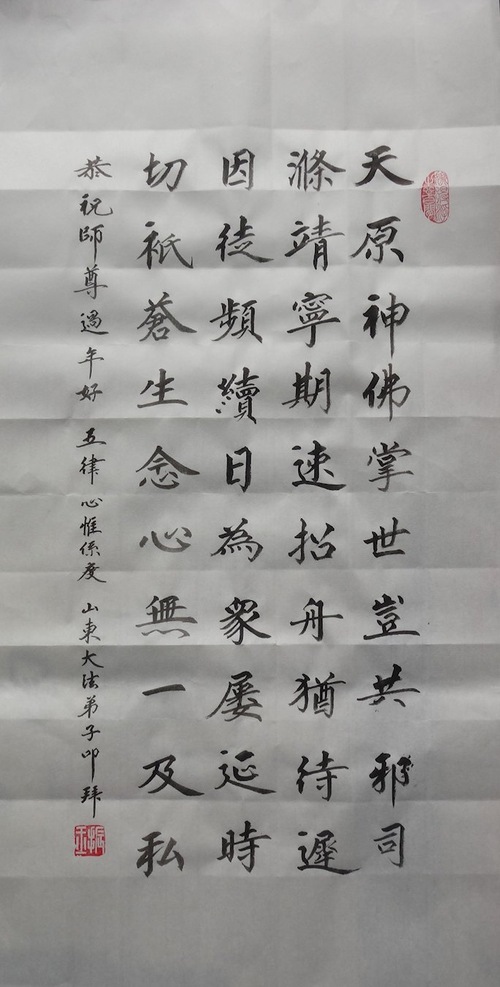 天原神佛掌世豈共邪司
滌靖寧期速招舟猶待遲
因徒頻續日為衆屢延時
切祇蒼生念心無一及私
恭祝師尊過年好 五律 心惟係度 山東大法弟子叩拜